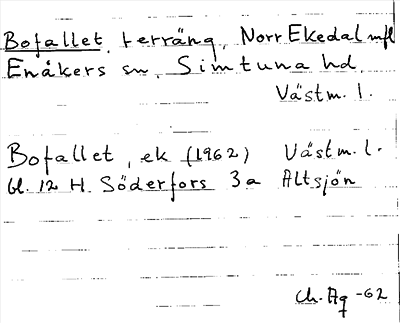 Bofallet, terräng, Norr Ekedal mfl
Enåkers sn, Simtuna hd,
Västm. l.
Bofallet, ek (1962) Västm. l.
bl. 12 H. Söderfors 3a Altsjön
Ch. Ag -62